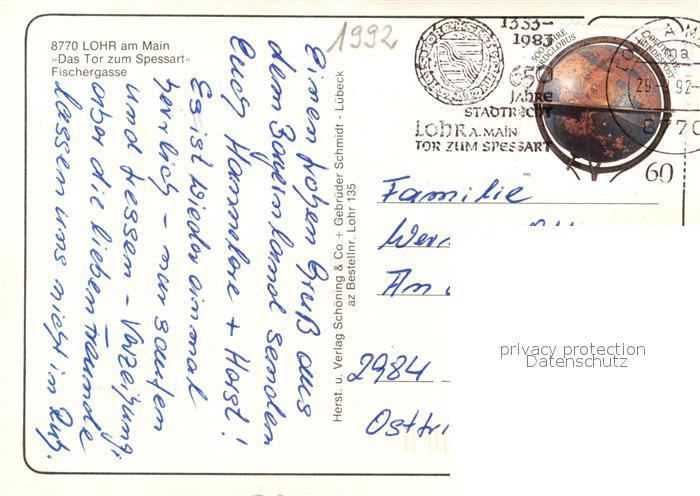 8770 LOHR am Main
»Das Tor zum Spessart«
Fischergasse
1992
1333-
1983
650
JAHRE
STADTRECHT
LOHR A. MAIN
TOR ZUM SPESSART
500 JAHRE
ERDGLOBUS
DEUTSCHE
BUNDESPOST
60
8770
Einen frohen Gruß aus
dem Bayernland senden
Euch Hannelore + Horst!
Es ist wieder einmal
herrlich - nur saufen
und fressen - Verzeihung!
aber die lieben Freunde
lassen uns nicht in Ruh.
Herst. u. Verlag Schöning & Co + Gebrüder Schmidt - Lübeck
az Bestellnr. Lohr 135
Familie
Wer
An
2984
Ostfri
privacy protection
Datenschutz